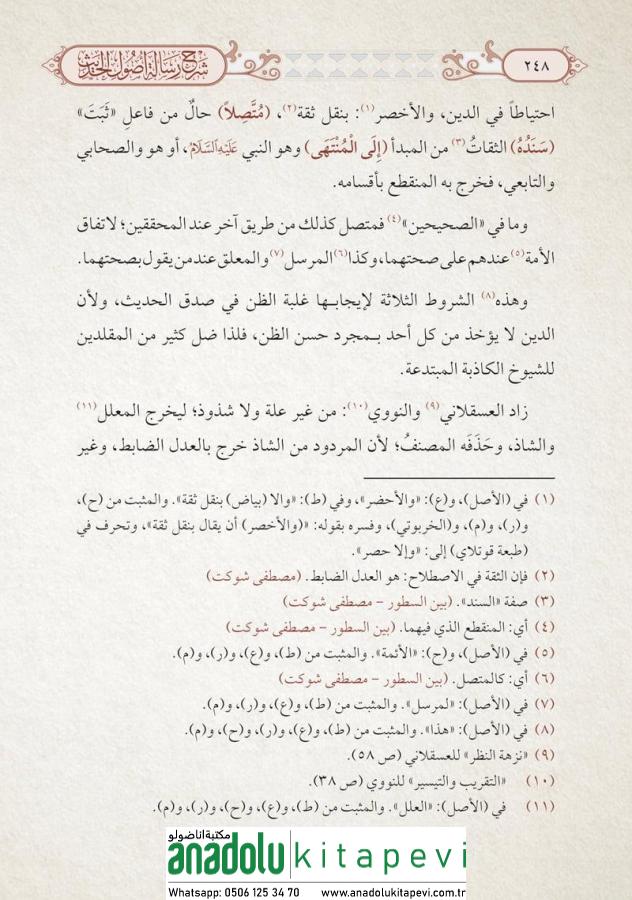 ٢٤٨
شرح رسالة أصول الحديث
احتياطاً في الدين، والأخصر(١): بنقل ثقة(٢)، (مُتَّصِلاً) حالٌ من فاعلِ «ثَبَتَ»
(سَنَدُهُ) الثقاتُ(٣) من المبدأ (إِلَى الْمُنْتَهَى) وهو النبي عَلَيْهِ السَّلَامُ، أو هو والصحابي
والتابعي، فخرج به المنقطع بأقسامه.
وما في «الصحيحين»(٤) فمتصل كذلك من طريق آخر عند المحققين؛ لاتفاق
الأمة(٥) عندهم على صحتهما، وكذا(٦) المرسل(٧) والمعلق عند من يقول بصحتهما.
وهذه(٨) الشروط الثلاثة لإيجابها غلبة الظن في صدق الحديث، ولأن
الدين لا يؤخذ من كل أحد بمجرد حسن الظن، فلذا ضل كثير من المقلدين
للشيوخ الكاذبة المبتدعة.
زاد العسقلاني(٩) والنووي(١٠): من غير علة ولا شذوذ؛ ليخرج المعلل(١١)
والشاذ، وحَذَفَه المصنفُ؛ لأن المردود من الشاذ خرج بالعدل الضابط، وغير
(١) في (الأصل)، و(ع): «والأحضر»، وفي (ط): «والا (بياض) بنقل ثقة». والمثبت من (ح)،
و(ر)، و(م)، و(الخربوتي)، وفسره بقوله: «(والأخصر) أن يقال بنقل ثقة»، وتحرف في
(طبعة قوتلاي) إلى: «وإلا حصر».
(٢) فإن الثقة في الاصطلاح: هو العدل الضابط. (مصطفى شوكت)
(٣) صفة «السند». (بين السطور – مصطفى شوكت)
(٤) أي: المنقطع الذي فيهما. (بين السطور – مصطفى شوكت)
(٥) في (الأصل)، و(ح): «الأئمة». والمثبت من (ط)، و(ع)، و(ر)، و(م).
(٦) أي: كالمتصل. (بين السطور – مصطفى شوكت)
(٧) في (الأصل): «لمرسل». والمثبت من (ط)، و(ع)، و(ر)، و(م).
(٨) في (الأصل): «هذا». والمثبت من (ط)، و(ع)، و(ر)، و(ح)، و(م).
(٩) «نزهة النظر» للعسقلاني (ص ٥٨).
(١٠) «التقريب والتيسير» للنووي (ص ٣٨).
(١١) في (الأصل): «العلل». والمثبت من (ط)، و(ع)، و(ح)، و(ر)، و(م).
مكتبة اناضولو
anadolu kitapevi
Whatsapp: 0506 125 34 70 www.anadolukitapevi.com.tr